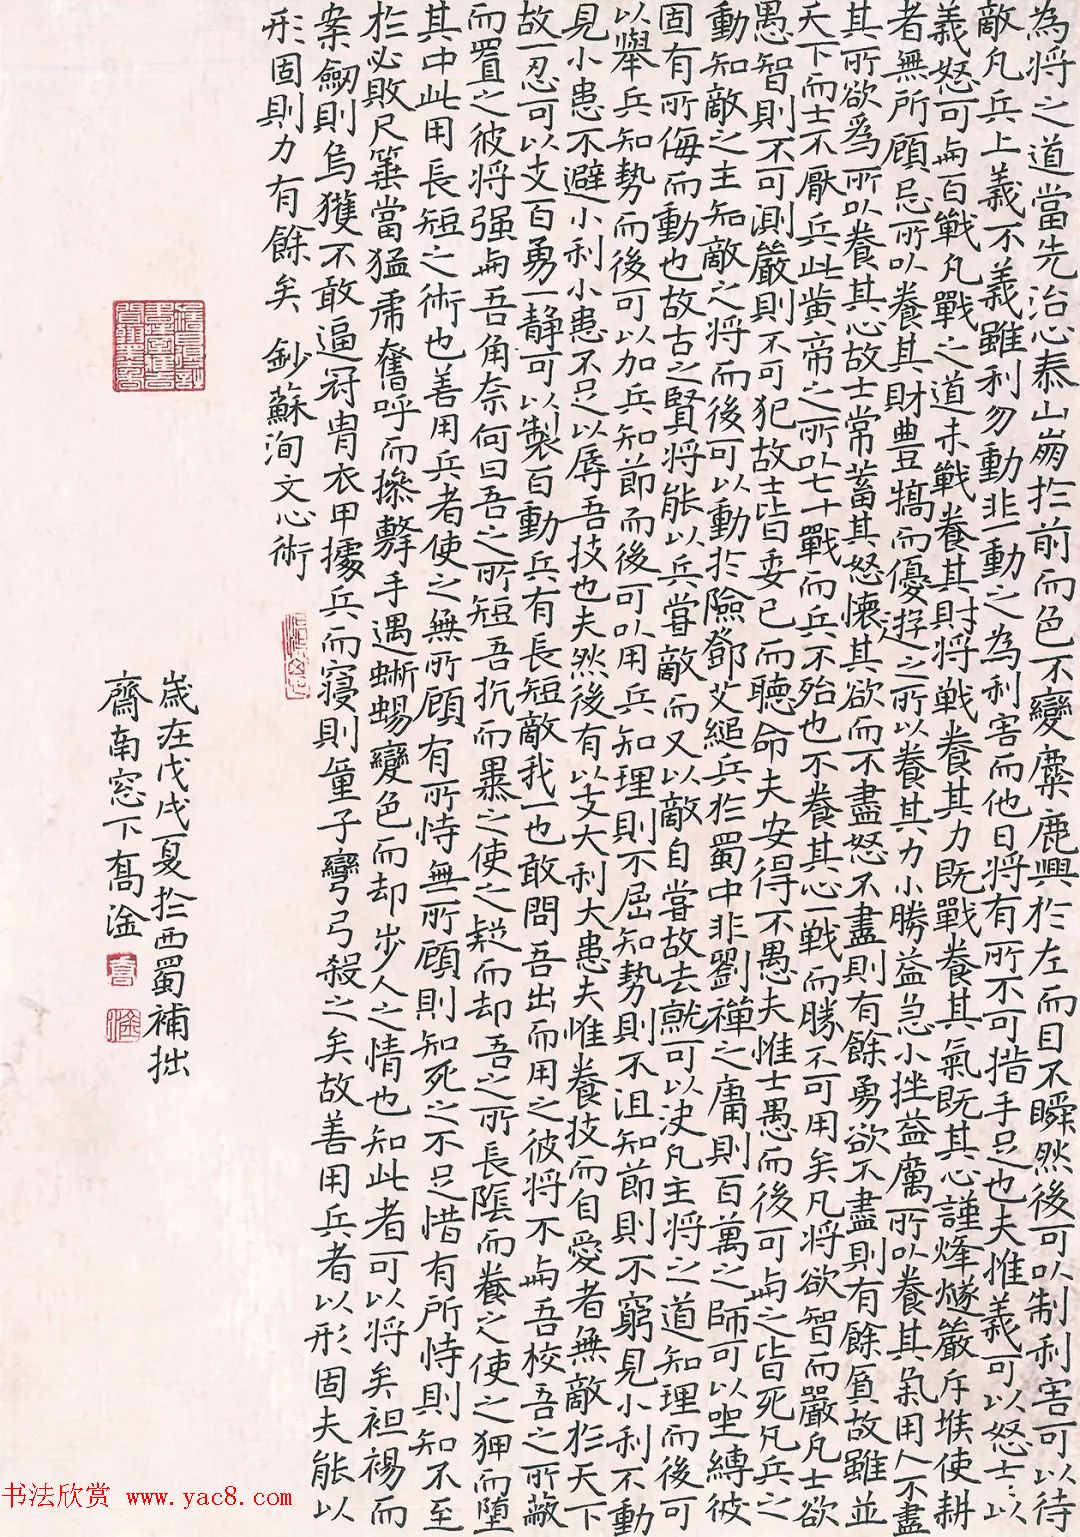 為將之道當先治心泰山崩於前而色不變麋鹿興於左而目不瞬然後可以制利害可以待
敵凡兵上義不義雖利勿動非一動之為利害而他日將有所不可措手足也夫惟義可以怒士:以
義怒可與百戰凡戰之道未戰養其財將戰養其力既戰養其氣既其心謹烽燧嚴斥堠使耕
者無所顧忌所以養其財豊犒而優游之所以養其力小勝益急小挫益厲所以養其氣用人不盡
其所欲爲所以養其心故士常蓄其怒懷其欲而不盡怒不盡則有餘勇欲不盡則有餘貭故雖並
天下而士不厭兵此黄帝之所以七十戰而兵不殆也不養其心一戰而勝不可用矣凡將欲智而嚴凡士欲
愚智則不可測嚴則不可犯故士皆委己而聽命夫安得不愚夫惟士愚而後可與之皆死凡兵之
動知敵之主知敵之將而後可以動於險鄧艾縋兵於蜀中非劉禪之庸則百萬之師可以坐縛彼
固有所侮而動也故古之賢將能以兵嘗敵而又以敵自嘗故去就可以决凡主將之道知理而後可
以舉兵知勢而後可以加兵知節而後可以用兵知理則不屈知勢則不沮知節則不窮見小利不動
見小患不避小利小患不足以辱吾技也夫然後有以支大利大患夫惟養技而自愛者無敵於天下
故一忍可以支百勇一靜可以製百動兵有長短敵我一也敢問吾出而用之彼將不與吾校吾之所蔽
而置之彼將强與吾角奈何曰吾之所短吾抗而暴之使之疑而却吾之所長陰而養之使之狎而墮
其中此用長短之術也善用兵者使之無所顧有所恃無所顧則知死之不足惜有所恃則知不至
於必敗尺箠當猛虎奮呼而操擊手遇蜥蜴變色而却步人之情也知此者可以將矣袒裼而
案劍則烏獲不敢逼冠胄衣甲據兵而寢則童子彎弓殺之矣故善用兵者以形固夫能以
形固則力有餘矣 鈔蘇洵文心術
歲在戊戌夏於西蜀補拙
齋南窓下髙淦
书法欣赏 www.yac8.com